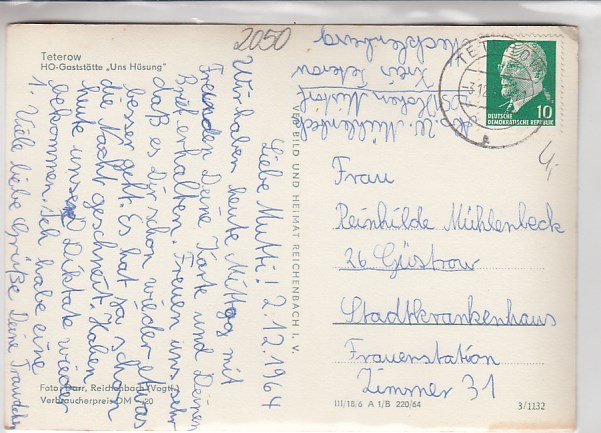 2050
Teterow
HO-Gaststätte „Uns Hüsung"
Liebe Mutti! 2.12.1964
Wir haben heute Mittag mit
Freunden Deine Karte und Deinen
Brief erhalten. Freuen uns sehr
daß es Dir schon wieder etwas
besser geht. Es hat ja schon
die Nacht geschneit. Haben
heute unsere Diktate wieder
bekommen. Ich habe eine
1. Viele liebe Grüße Deine
Foto: Darr, Reichenbach (Vogtl.)
Verbraucherpreis DM –,20
VEB BILD UND HEIMAT REICHENBACH I. V.
Abs. U. Mühlenbeck
Kreis Teterow
Mecklenburg
TETEROW
10
DEUTSCHE
DEMOKRATISCHE REPUBLIK
4,-
Frau
Reinhilde Mühlenbeck
26 Güstrow
Stadtkrankenhaus
Frauenstation
Zimmer 31
III/18/6 A 1/B 220/64
3/1132